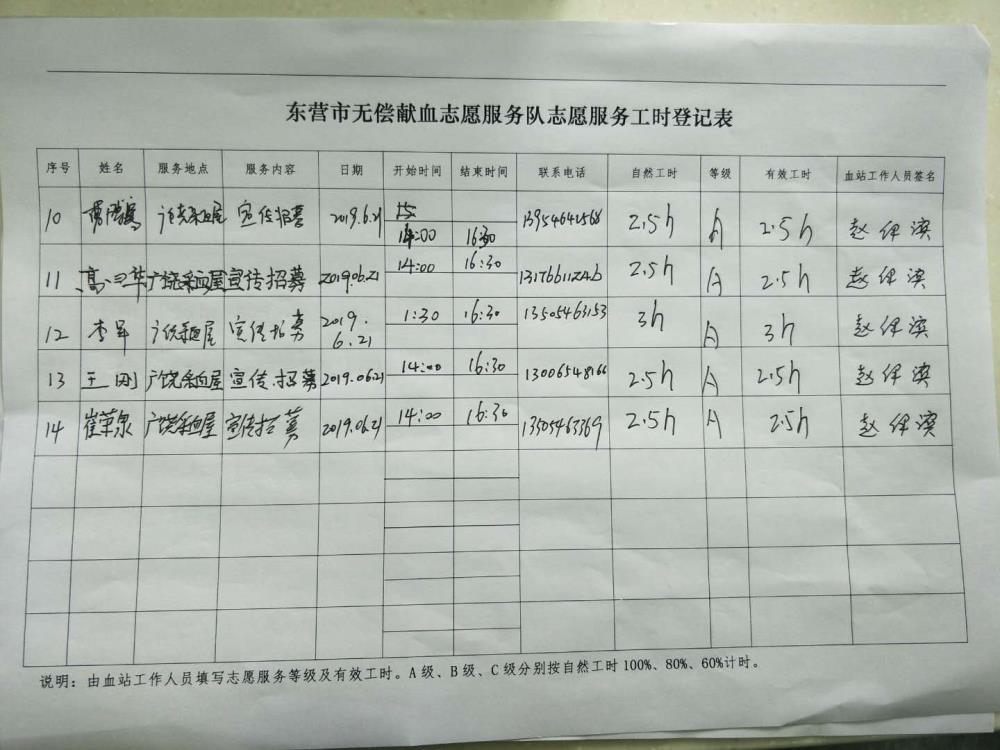 东营市无偿献血志愿服务队志愿服务工时登记表
序号 姓名 服务地点 服务内容 日期 开始时间 结束时间 联系电话 自然工时 等级 有效工时 血站工作人员签名
10 广饶采血屋 宣传招募 2019.6.21 14:00 16:30 2.5h A 2.5h 赵伊滨
11 广饶采血屋 宣传招募 2019.06.21 14:00 16:30 2.5h A 2.5h 赵伊滨
12 李军 广饶采血屋 宣传招募 2019.6.21 1:30 16:30 13505463153 3h A 3h 赵伊滨
13 王刚 广饶采血屋 宣传.招募 2019.06.21 14:00 16:30 13006548166 2.5h A 2.5h 赵伊滨
14 崔荣泉 广饶采血屋 宣传招募 2019.06.21 14:00 16:30 13505463369 2.5h A 2.5h 赵伊滨
说明：由血站工作人员填写志愿服务等级及有效工时。A级、B级、C级分别按自然工时100%、80%、60%计时。